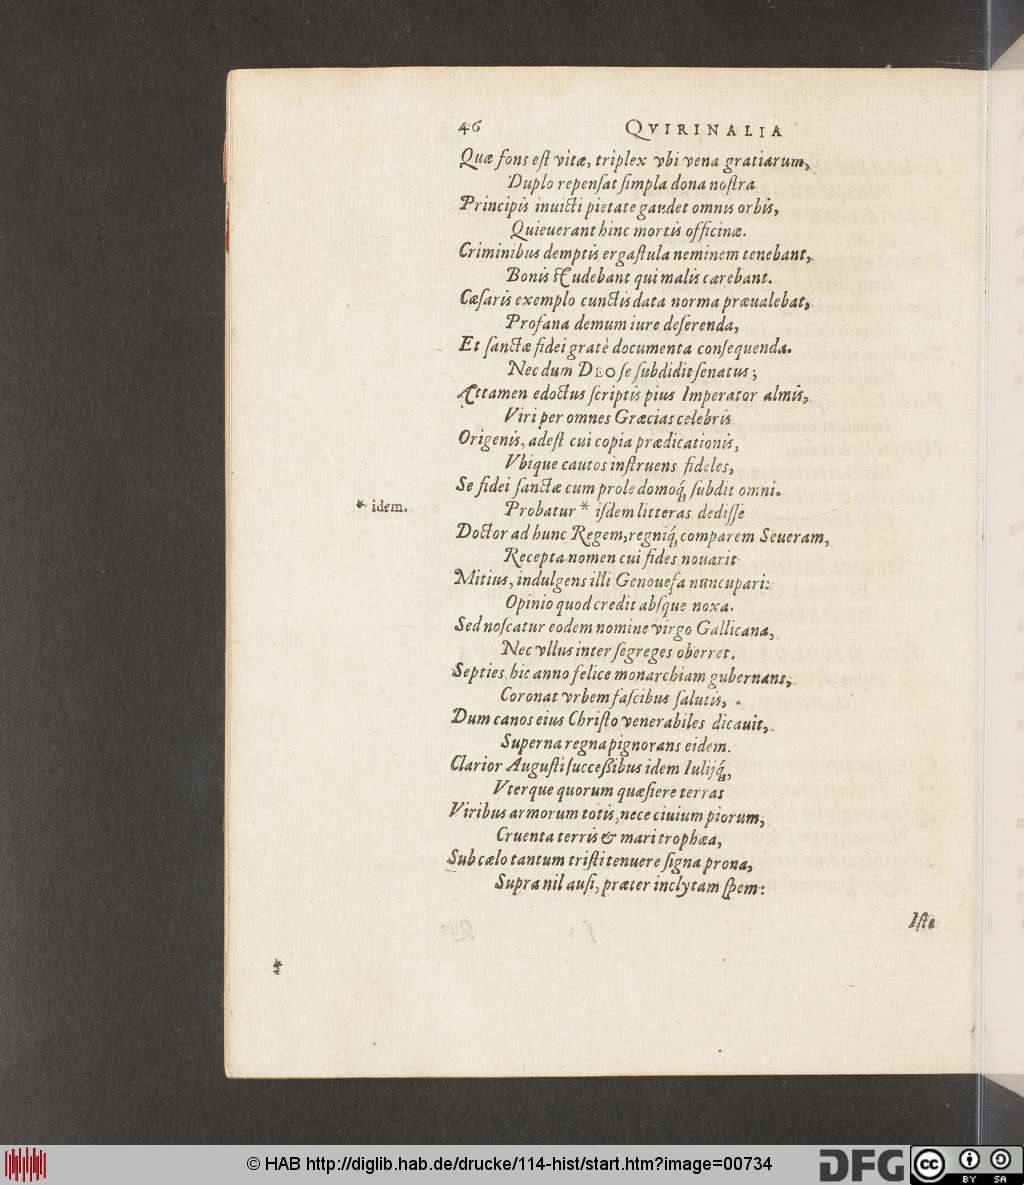 46 QVIRINALIA
Quæ fons eſt vitæ, triplex vbi vena gratiarum,
Duplo repenſat ſimpla dona noſtra
Principis inuicti pietate gaudet omnis orbis,
Quieuerant hinc mortis officinæ.
Criminibus demptis ergaſtula neminem tenebant,
Bonis ſtudebant qui malis carebant.
Cæſaris exemplo cunctis data norma præualebat,
Profana demum iure deſerenda,
Et ſanctæ fidei gratè documenta conſequenda.
Nec dum DEO ſe ſubdidit ſenatus;
Attamen edoctus ſcriptis pius Imperator almis,
Viri per omnes Græcias celebris
Origenis, adeſt cui copia prædicationis,
Vbique cautos inſtruens fideles,
Se fidei ſanctæ cum prole domoq́; ſubdit omni.
Probatur * iſdem litteras dediſſe
* idem.
Doctor ad hunc Regem, regniq́; comparem Seueram,
Recepta nomen cui fides nouarit
Mitius, indulgens illi Genouefa nuncupari:
Opinio quod credit abſque noxa.
Sed noſcatur eodem nomine virgo Gallicana,
Nec vllus inter ſegreges oberret.
Septies hic anno felice monarchiam gubernans,
Coronat vrbem faſcibus ſalutis,
Dum canos eius Chriſto venerabiles dicauit,
Superna regna pignorans eidem.
Clarior Auguſti ſucceſſibus idem Iulijq́;,
Vterque quorum quæſiere terras
Viribus armorum totis, nece ciuium piorum,
Cruenta terris & mari trophæa,
Sub cælo tantum triſti tenuere ſigna prona,
Supra nil auſi, præter inclytam ſpem:
Iſte
© HAB http://diglib.hab.de/drucke/114-hist/start.htm?image=00734
DFG
cc
BY SA